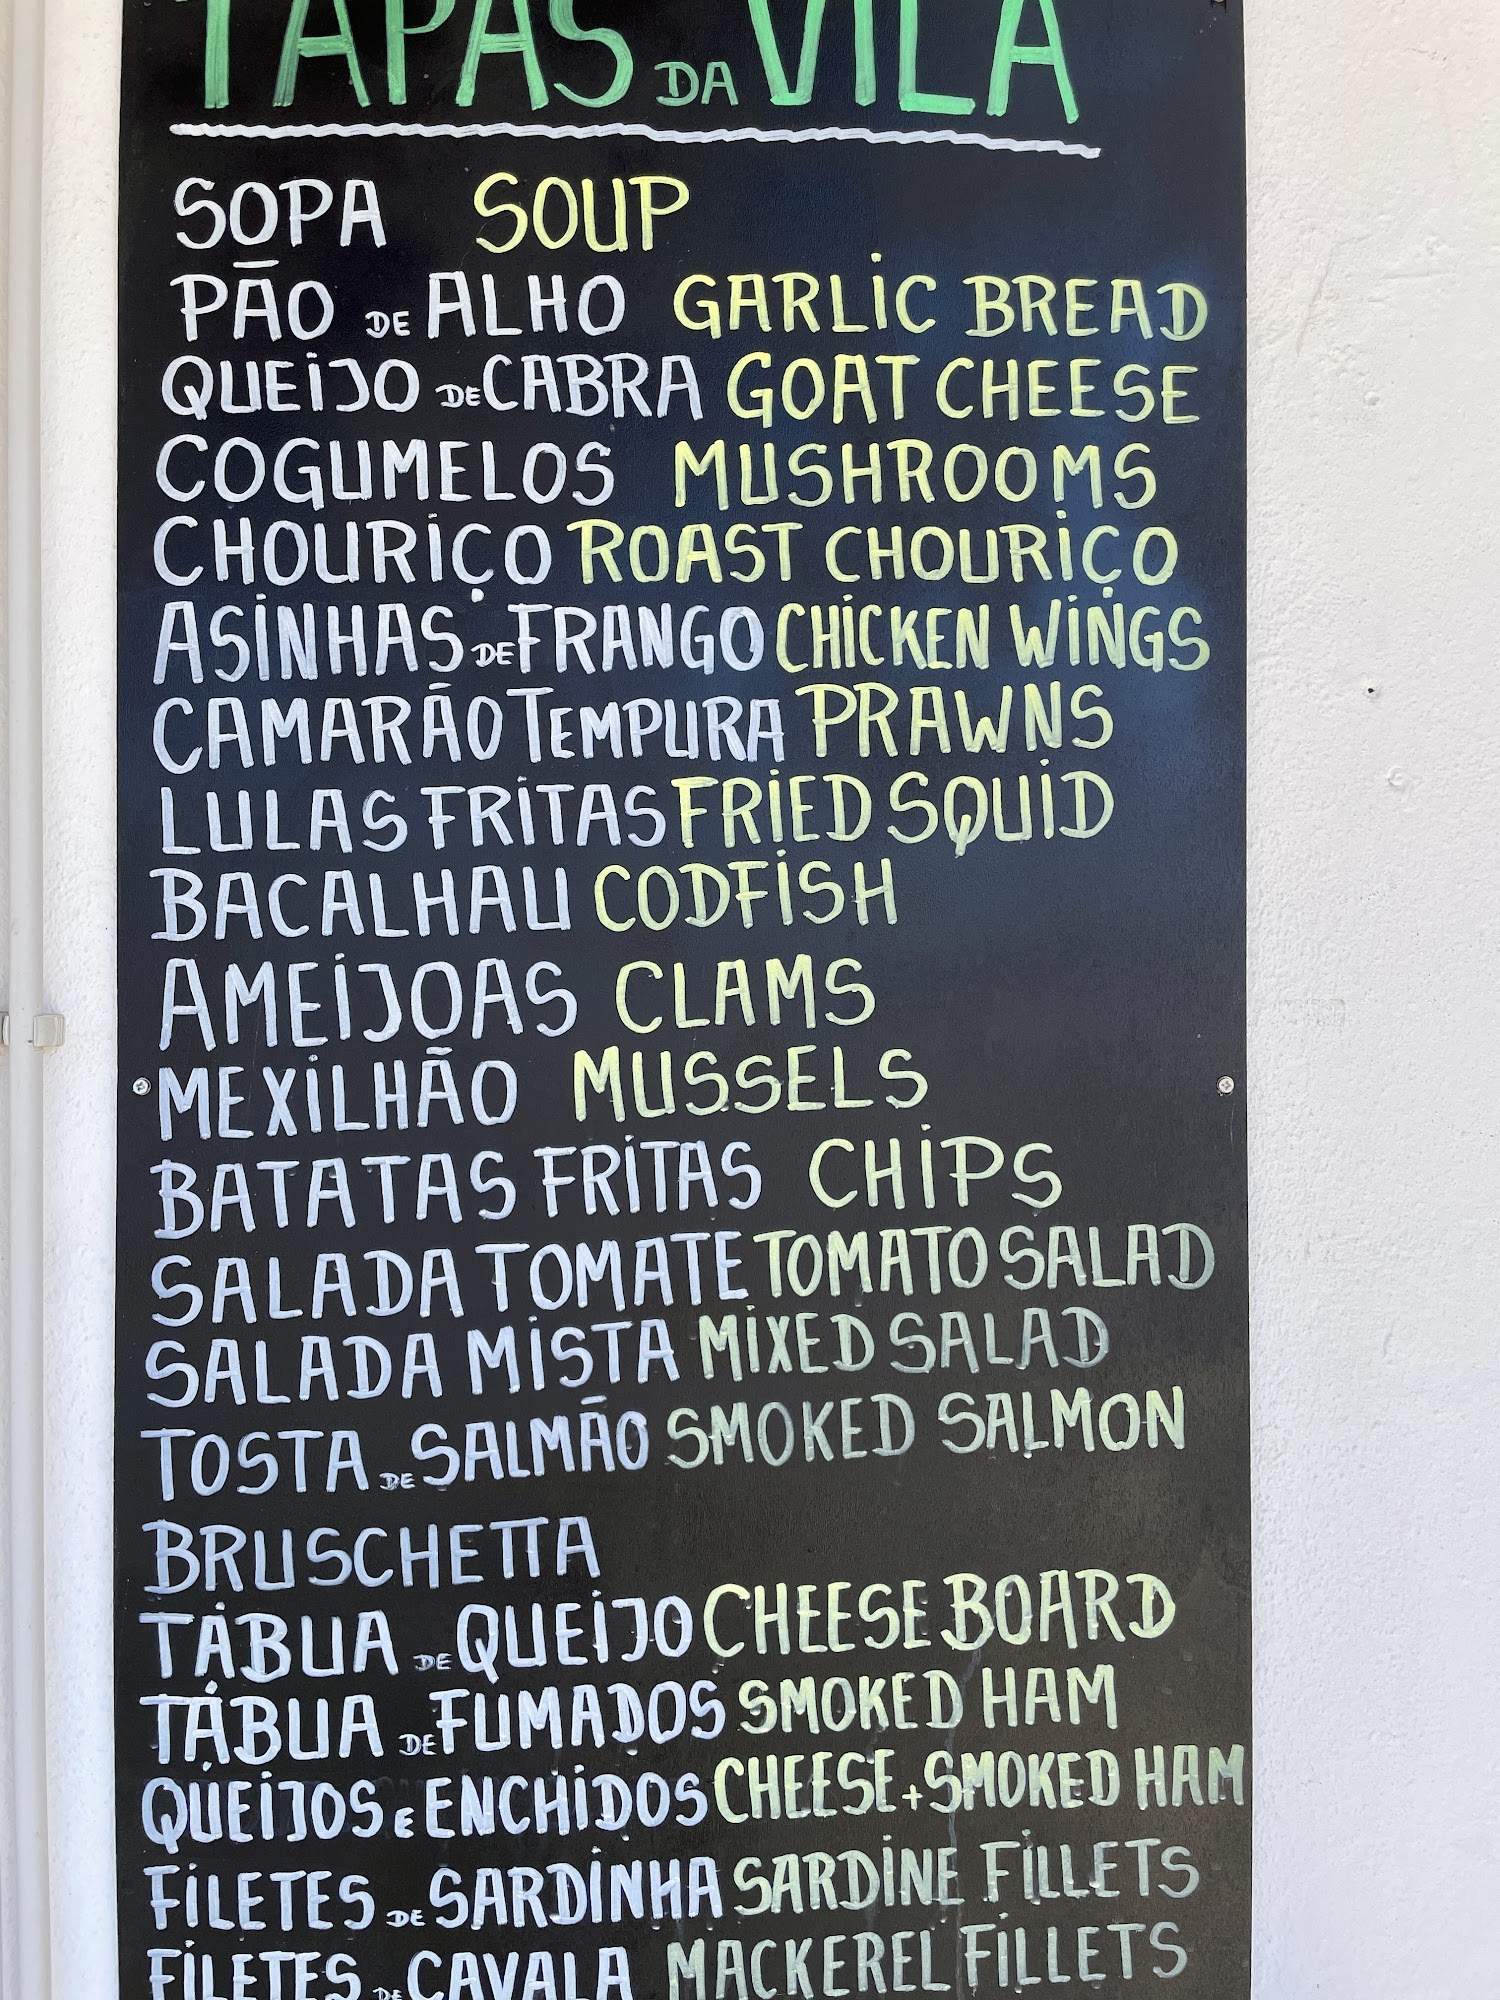 TAPAS DA VILA
SOPA SOUP
PÃO DE ALHO GARLIC BREAD
QUEIJO DE CABRA GOAT CHEESE
COGUMELOS MUSHROOMS
CHOURIÇO ROAST CHOURIÇO
ASINHAS DE FRANGO CHICKEN WINGS
CAMARÃO TEMPURA PRAWNS
LULAS FRITAS FRIED SQUID
BACALHAU CODFISH
AMEIJOAS CLAMS
MEXILHÃO MUSSELS
BATATAS FRITAS CHIPS
SALADA TOMATE TOMATO SALAD
SALADA MISTA MIXED SALAD
TOSTA DE SALMÃO SMOKED SALMON
BRUSCHETTA
TÁBUA DE QUEIJO CHEESE BOARD
TÁBUA DE FUMADOS SMOKED HAM
QUEIJOS E ENCHIDOS CHEESE + SMOKED HAM
FILETES DE SARDINHA SARDINE FILLETS
FILETES DE CAVALA MACKEREL FILLETS